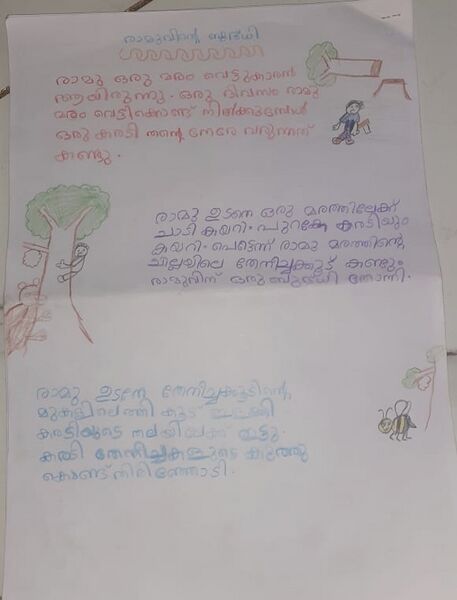 രാമുവിന്റെ ബുദ്ധി
രാമു ഒരു മരം വെട്ടുകാരൻ
ആയിരുന്നു. ഒരു ദിവസം രാമു
മരം വെട്ടിക്കൊണ്ട് നിൽക്കുമ്പോൾ
ഒരു കരടി തന്റെ നേരെ വരുന്നത്
കണ്ടു.
രാമു ഉടനെ ഒരു മരത്തിലേക്ക്
ചാടി കയറി. പുറകേ കരടിയും
കയറി. പെട്ടെന്ന് രാമു മരത്തിന്റെ
ചില്ലയിലെ തേനീച്ചക്കൂട് കണ്ടും
രാമുവിന് ഒരു ബുദ്ധി തോന്നി.
രാമു ഉടനേ തേനീച്ചക്കൂടിന്റെ
മുകളിലെത്തി കൂട്
കരടിയുടെ തലയിലേക്ക് ഇട്ടു.
കരടി തേനീച്ചകളുടെ കുത്തു
കൊണ്ട് തിരിഞ്ഞോടി.